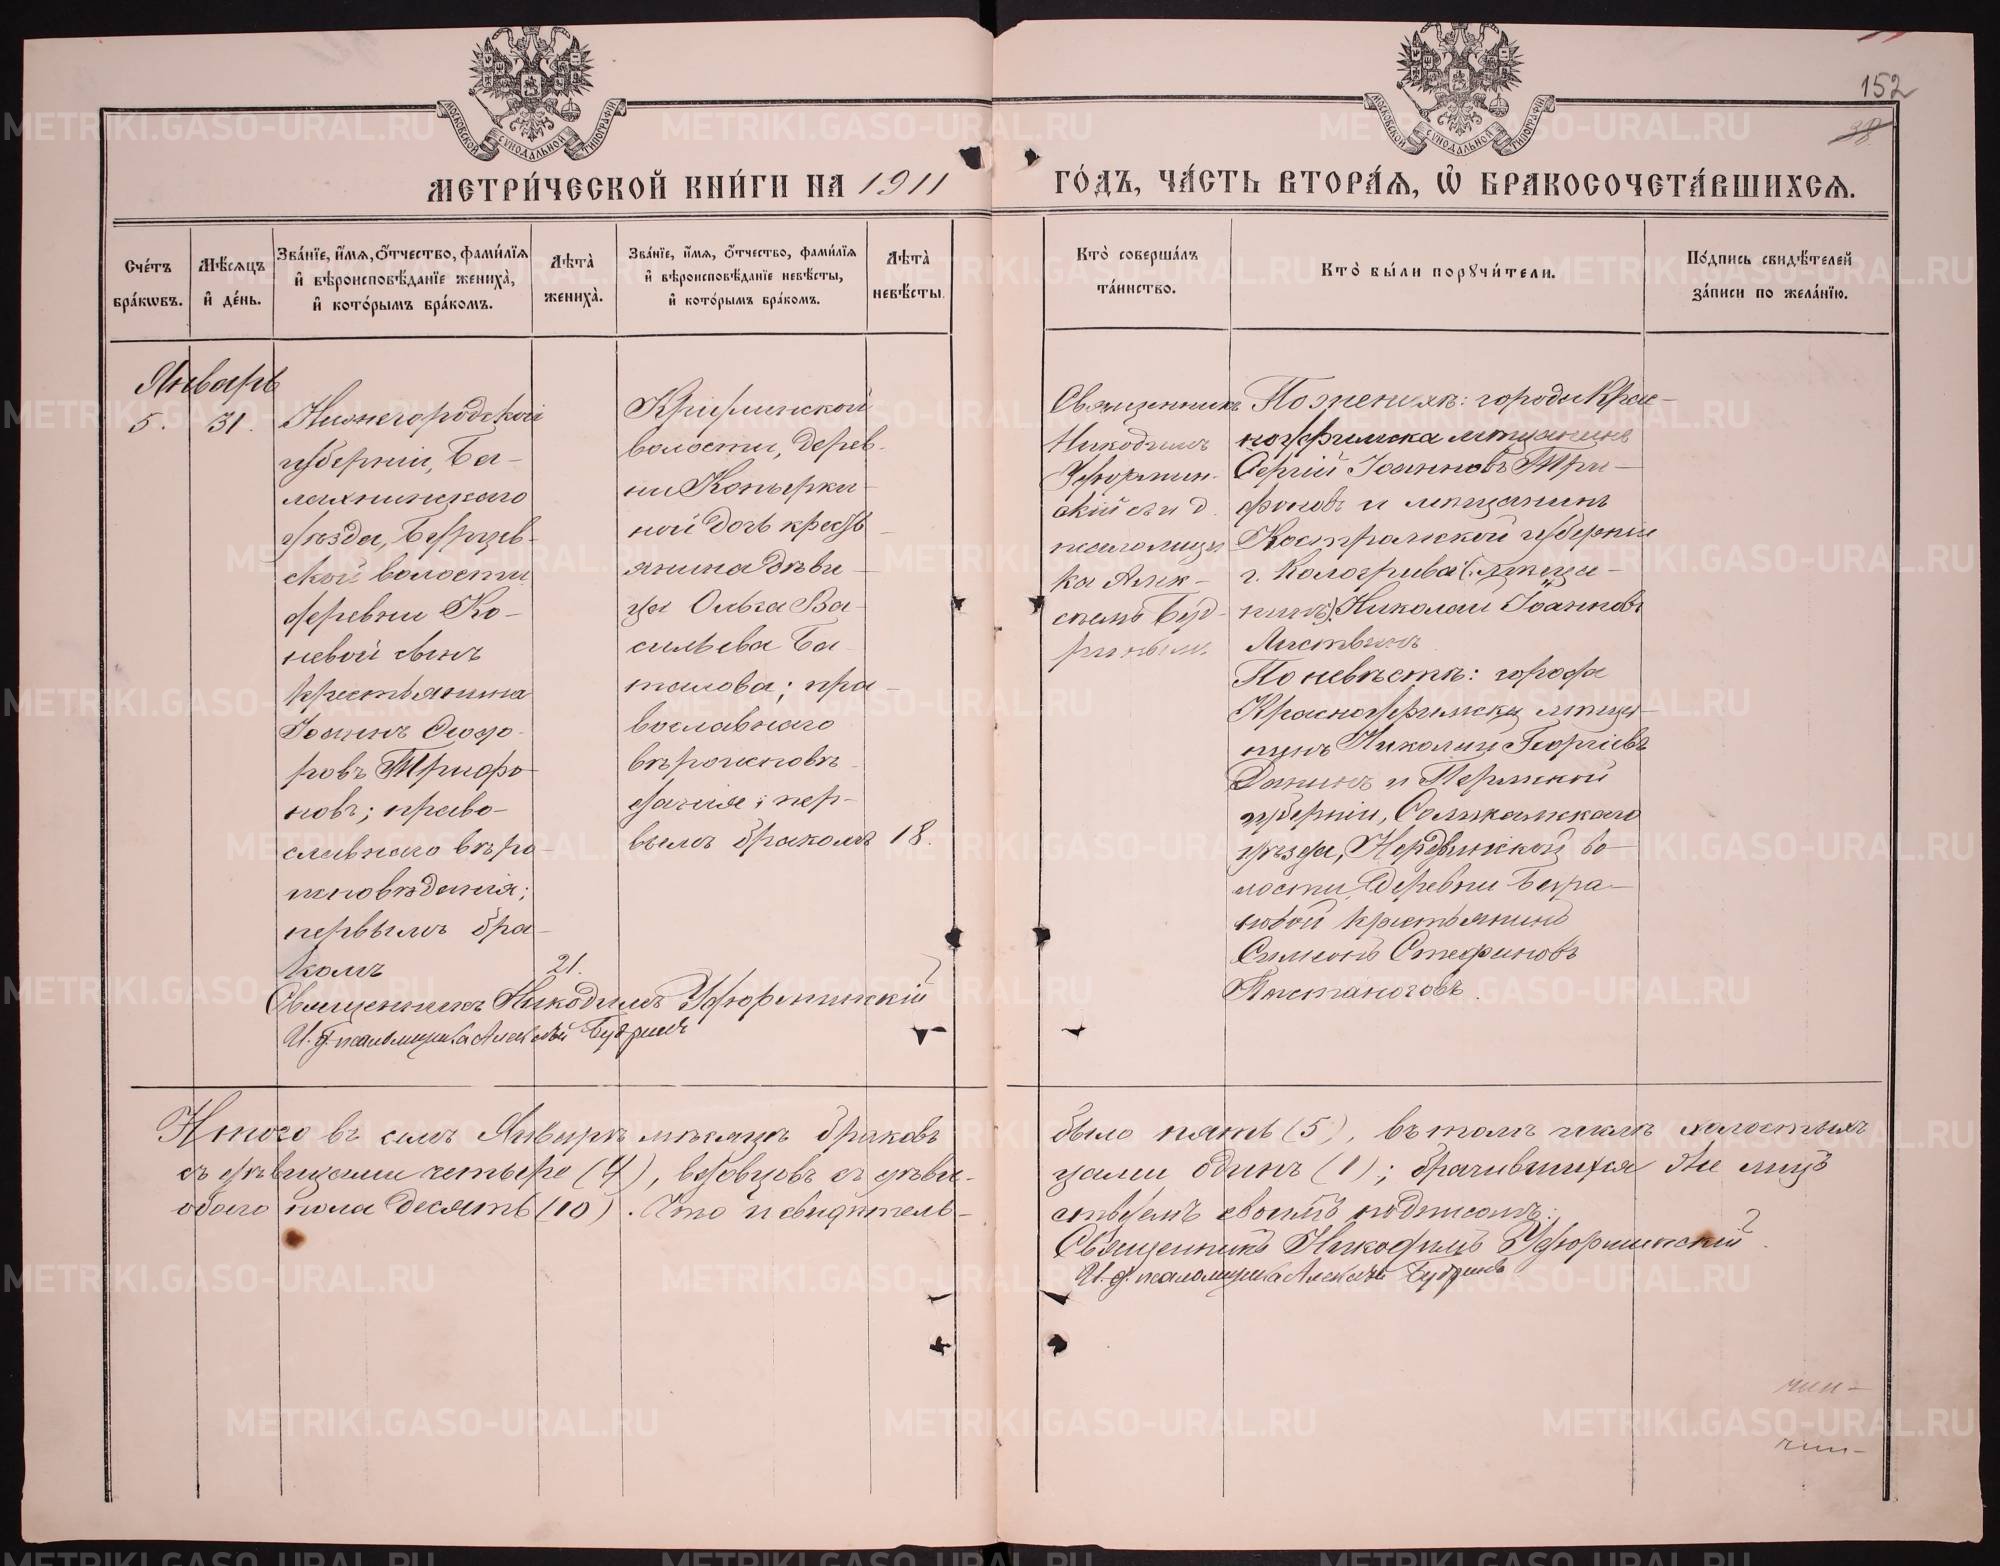 МОСКОВСКОЙ СѴНОДАЛЬНОЙ ТИПОГРАФІИ
МОСКОВСКОЙ СѴНОДАЛЬНОЙ ТИПОГРАФІИ
152
38
МЕТРИ́ЧЕСКОЙ КНИ́ГИ НА 1911
ГО́ДЪ, ЧА́СТЬ ВТОРА́Ѧ, Ѡ҆ БРАКОСОЧЕТА́ВШИХСѦ.
Сче́тъ
бра́кѡвъ.
Мѣ́сѧцъ
и҆ де́нь.
Зва́нїе, и҆́мѧ, ѻ҆́тчество, фами́лїѧ
и҆ вѣроисповѣ́данїе жениха̀,
и҆ кото́рымъ бра́комъ.
Лѣта̀
жениха̀.
Зва́нїе, и҆́мѧ, ѻ҆́тчество, фами́лїѧ
и҆ вѣроисповѣ́данїе невѣ́сты,
и҆ кото́рымъ бра́комъ.
Лѣта̀
невѣ́сты.
Кто̀ соверша́лъ
та́инство.
Кто̀ бы́ли порꙋчи́тели.
По́дпись свидѣ́телей
за́писи по жела́нїю.
Январь
5.
31.
Нижегородской
губерніи, Ба-
лахнинскаго
уѣзда,
ской волости
деревни Ко-
невой сынъ
крестьянина
Іоаннъ Ѳеодо-
ровъ Трифо-
новъ; право-
славнаго вѣро-
исповѣданія;
первымъ бра-
комъ
21.
волости, дерев-
ни Копырка-
ной дочь кресть
янина дѣви-
ца Ольга Ва-
сильева Ба-
талова; пра-
вославнаго
вѣроисповѣ
данія; пер-
вымъ бракомъ
18.
Священникъ
Никодимъ
Уфюрмин-
скій съ и д
псаломщи
ка Алек-
сѣемъ Буд-
ринымъ
По женихѣ: города Крас-
ноуфимска мѣщанинъ
Сергій Іоанновъ Три-
фоновъ и мѣщанинъ
Костромской губерніи
г. Кологрива (мѣща-
нинъ) Николай Іоанновъ
Листвинъ
По невѣстѣ: города
Красноуфимска мѣща-
нинъ Николай Георгіевъ
Данинъ и Пермской
губерніи, Соликамскаго
уѣзда, Нердвинской во-
лости, деревни
крестьянинъ
Симеонъ Стефановъ
Священникъ Никодимъ Уфюрминскій
И. д. псаломщика Алексѣй Будринъ
Итого въ семъ Январѣ мѣсяцѣ браковъ
было пять (5), въ томъ числѣ холостыхъ
съ дѣвицами четыре (4), вдовцовъ съ дѣви-
цами одинъ (1); брачившихся же лицъ
обоего пола десять (10). Что и свидѣтель-
ствуемъ своимъ подписомъ:
Священникъ Никодимъ Уфюрминскій
И. д. псаломщика Алексѣй Будринъ
METRIKI.GASO-URAL.RU